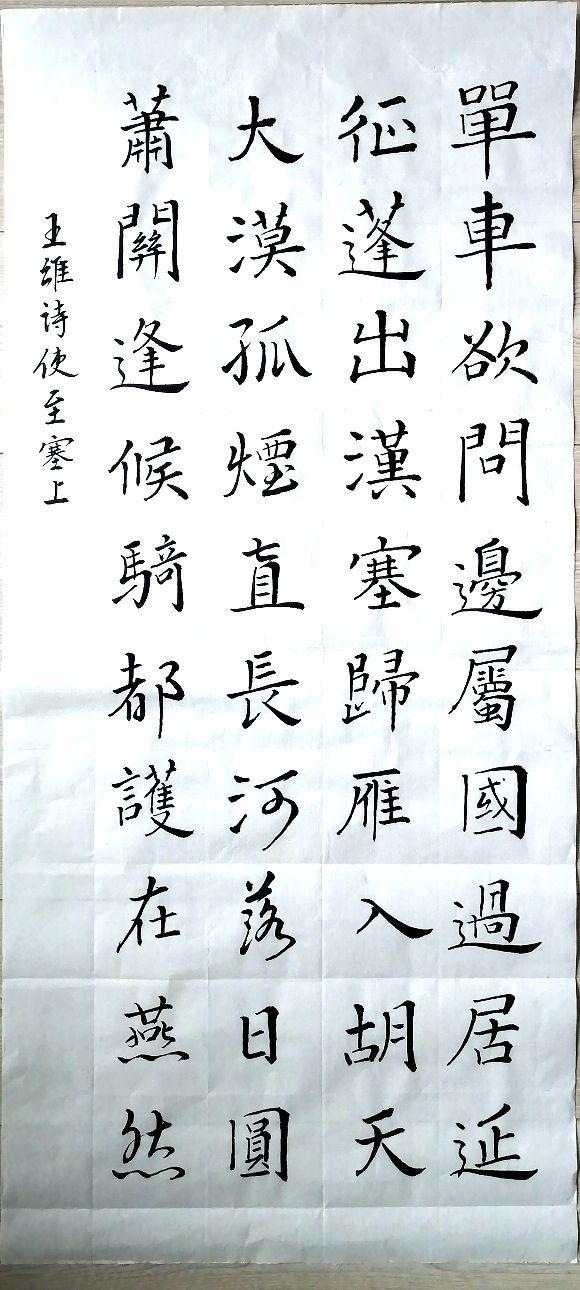 單車欲問邊屬國過居延
征蓬出漢塞歸雁入胡天
大漠孤煙直長河落日圓
蕭關逢候騎都護在燕然
王維诗使至塞上